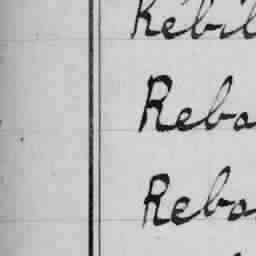 Rebil
Reba
Reba